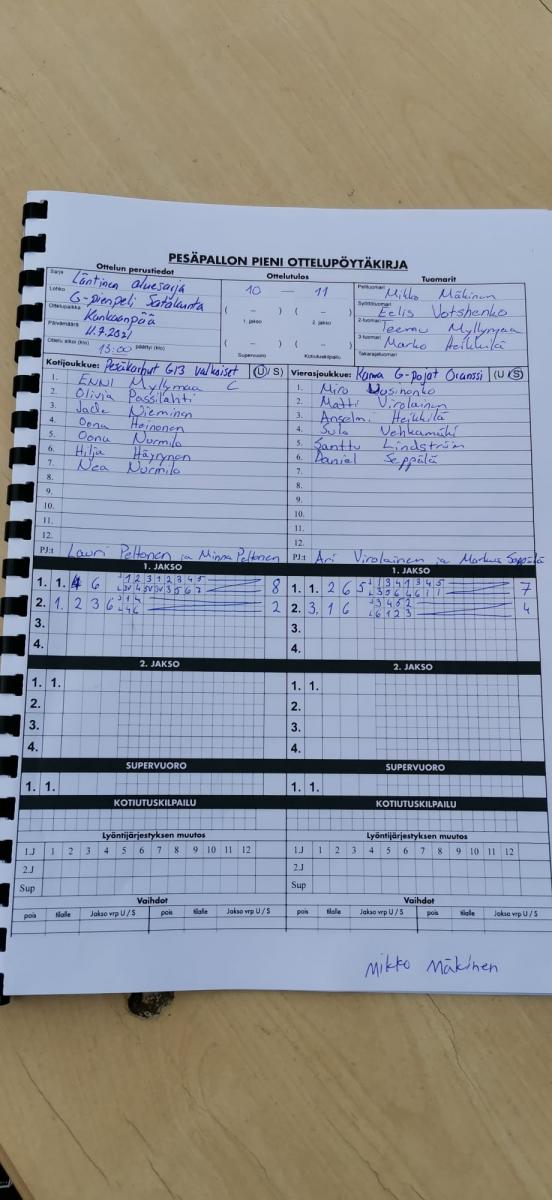 PESÄPALLON PIENI OTTELUPÖYTÄKIRJA
Ottelun perustiedot Ottelutulos Tuomarit
Sarja Läntinen aluesarja
Lohko G-pienpeli Satakunta
Ottelupaikka Kankaanpää
Päivämäärä 11.7.2021
Ottelu alkoi (klo) 13:00 päättyi (klo)
10 — 11
( – ) ( – )
1. jakso 2. jakso
( – ) ( – )
Supervuoro Kotiutuskilpailu
Pelituomari Mikko Mäkinen
Syöttötuomari Eelis Votshenko
2-tuomari Teemu Myllymaa
3-tuomari Marko Heikkilä
Takarajatuomari
Kotijoukkue: Pesäkarhut G13 valkoiset (U / S)
1. ENNI Myllymaa C
2. Olivia Passilahti
3. Jade Nieminen
4. Oona Heinonen
5. Oona Nurmilo
6. Hilja Häyrynen
7. Nea Nurmilo
8.
9.
10.
11.
12.
PJ:t Lauri Peltonen ja Minna Peltonen
Vierasjoukkue: G-pojat Oranssi (U / S)
1. Miro
2. Matti Virolainen
3. Anselmi Heikkilä
4. Sula Vehkamäki
5. Santtu Lindström
6. Daniel Seppälä
7.
8.
9.
10.
11.
12.
PJ:t Ari Virolainen ja Markus Seppälä
1. JAKSO 1. JAKSO
1. 1. 4 6 8
2. 1. 2 3 6 2
3.
4.
1. 1. 2 6 5 7
2. 3. 1 6 4
3.
4.
2. JAKSO 2. JAKSO
1. 1. 1. 1.
2. 2.
3. 3.
4. 4.
SUPERVUORO SUPERVUORO
1. 1. 1. 1.
KOTIUTUSKILPAILU KOTIUTUSKILPAILU
Lyöntijärjestyksen muutos Lyöntijärjestyksen muutos
1.J 1 2 3 4 5 6 7 8 9 10 11 12 1.J 1 2 3 4 5 6 7 8 9 10 11 12
2.J 2.J
Sup Sup
Vaihdot Vaihdot
pois tilalle Jakso vrp U / S pois tilalle Jakso vrp U / S pois tilalle Jakso vrp U / S pois tilalle Jakso vrp U / S
Mikko Mäkinen